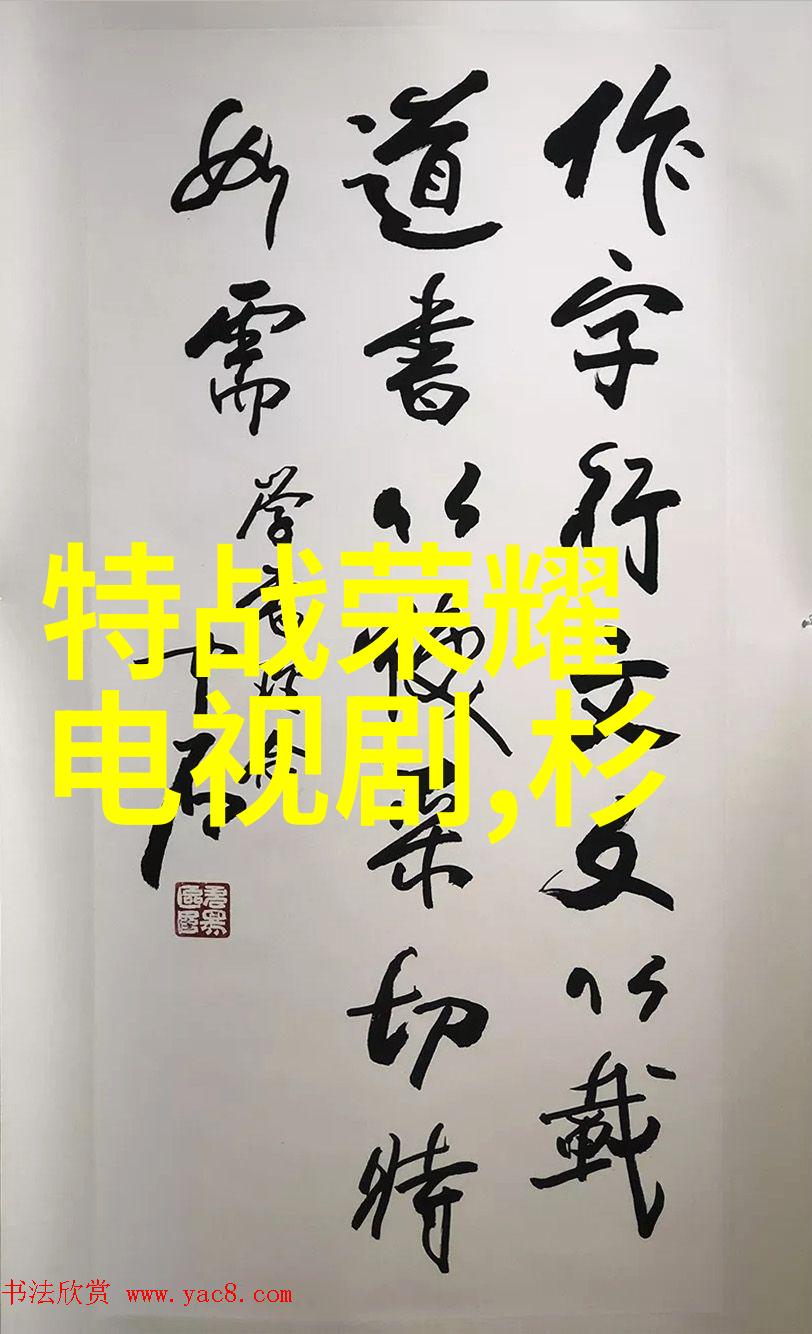 作字行文文以載
道書以焕采切時
如需
特战荣耀
电视剧,杉
书法欣赏 www.yac8.com